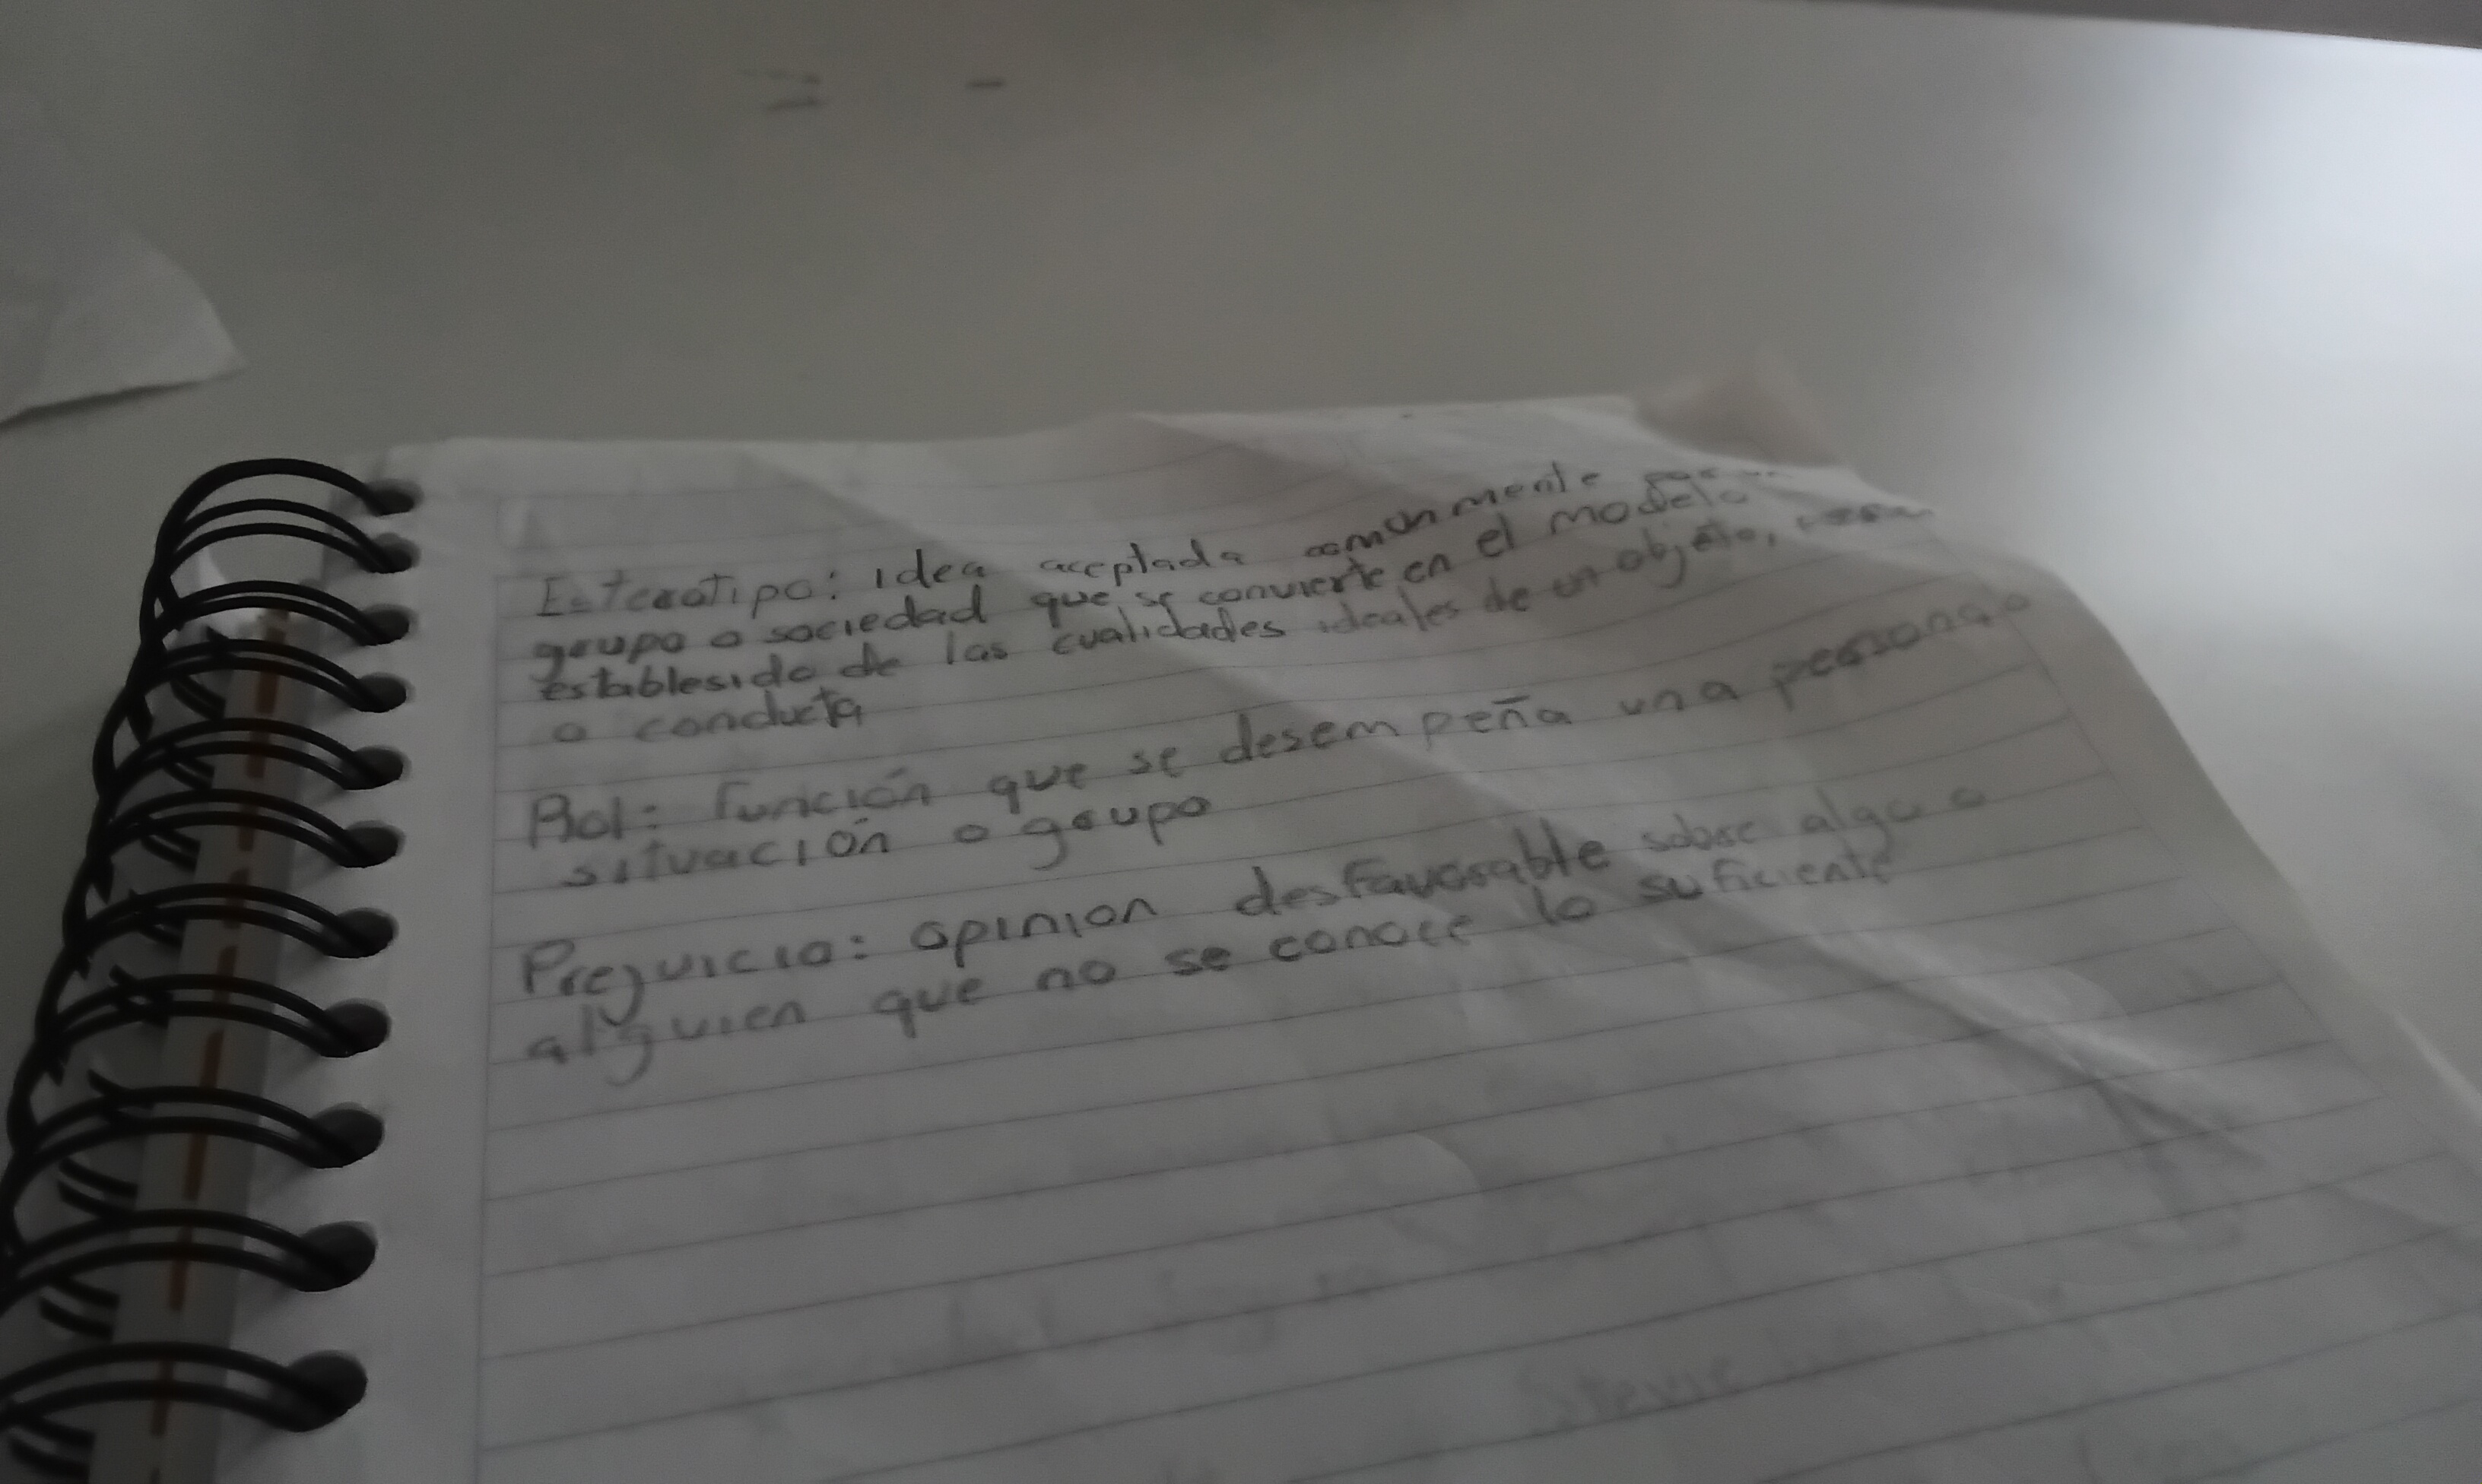 Estereotipo: idea aceptada comunmente por
grupo o sociedad que se convierte en el modelo
establesido de las cualidades ideales de un objeto,
o conducta
Rol: función que se desempeña una persona o
situación o grupo
Prejuicio: opinion desfavorable sobre algo o
alguien que no se conoce lo suficiente